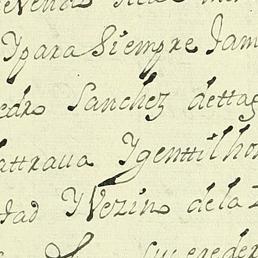 Ypara Siempre Jam
edro Sanchez dettag
attraua Ygenttilho
dad YVezino dela
Suceder